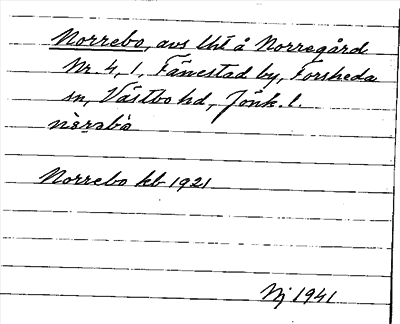 Norrebo, avs lht å Norregård
Nr 4, 1, Fänestad by, Forsheda
sn, Västbo hd, Jönk. l.
Norrebo kb 1921
Nj 1941